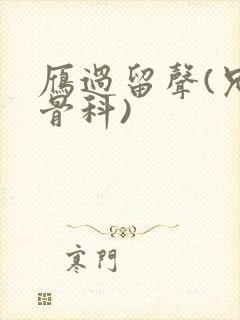 雁過留聲(兄
骨科)
寒門